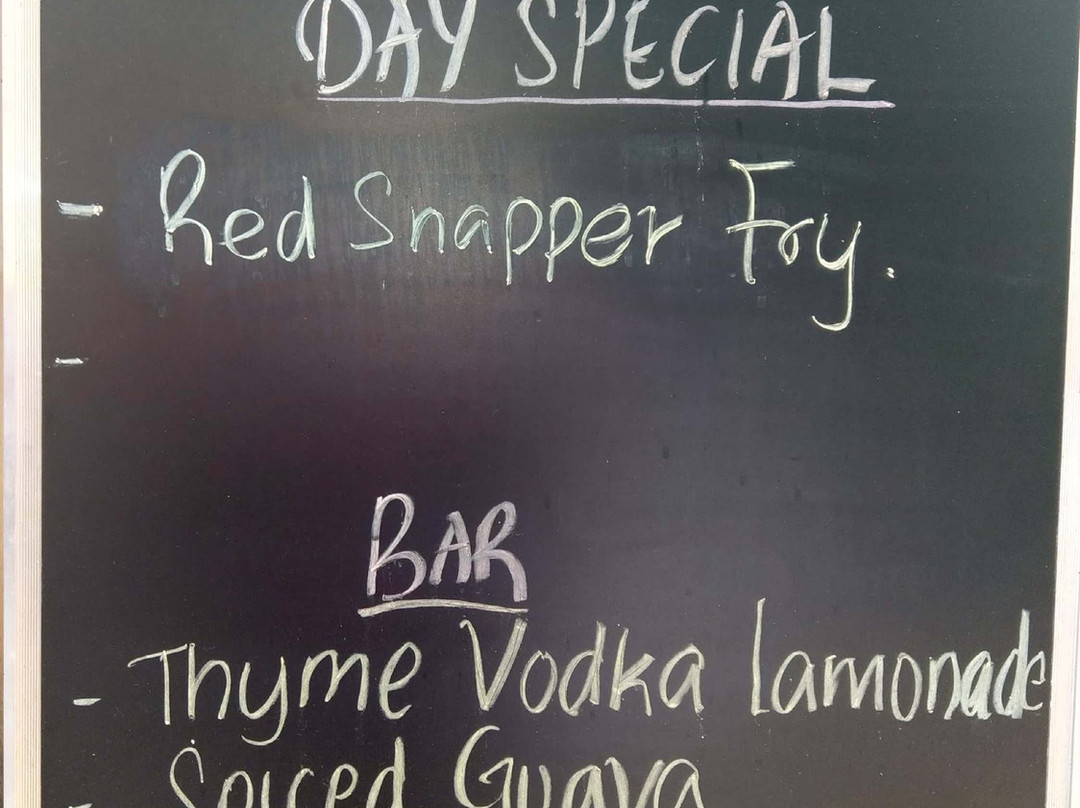 DAY SPECIAL
- Red Snapper Fry.
-
BAR
- Thyme Vodka Lamonade
- Spiced Guava